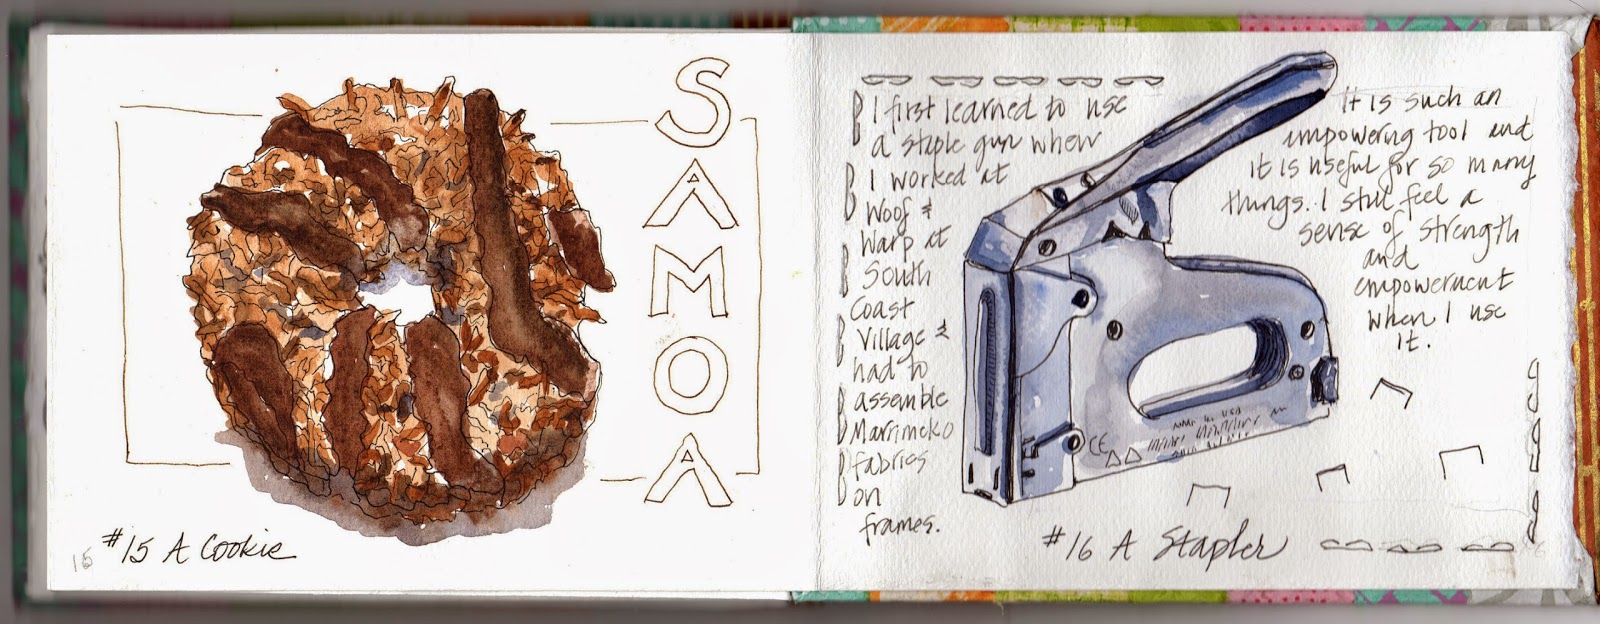 SAMOA
#15 A Cookie
15
I first learned to use
a staple gun when
I worked at
Woof &
Warp at
South
Coast
Village &
had to
assemble
Marrimeko
fabrics
on
frames.
It is such an
empowering tool and
it is useful for so many
things. I still feel a
sense of strength
and
empowerment
when I use
it.
CE
#16 A Stapler